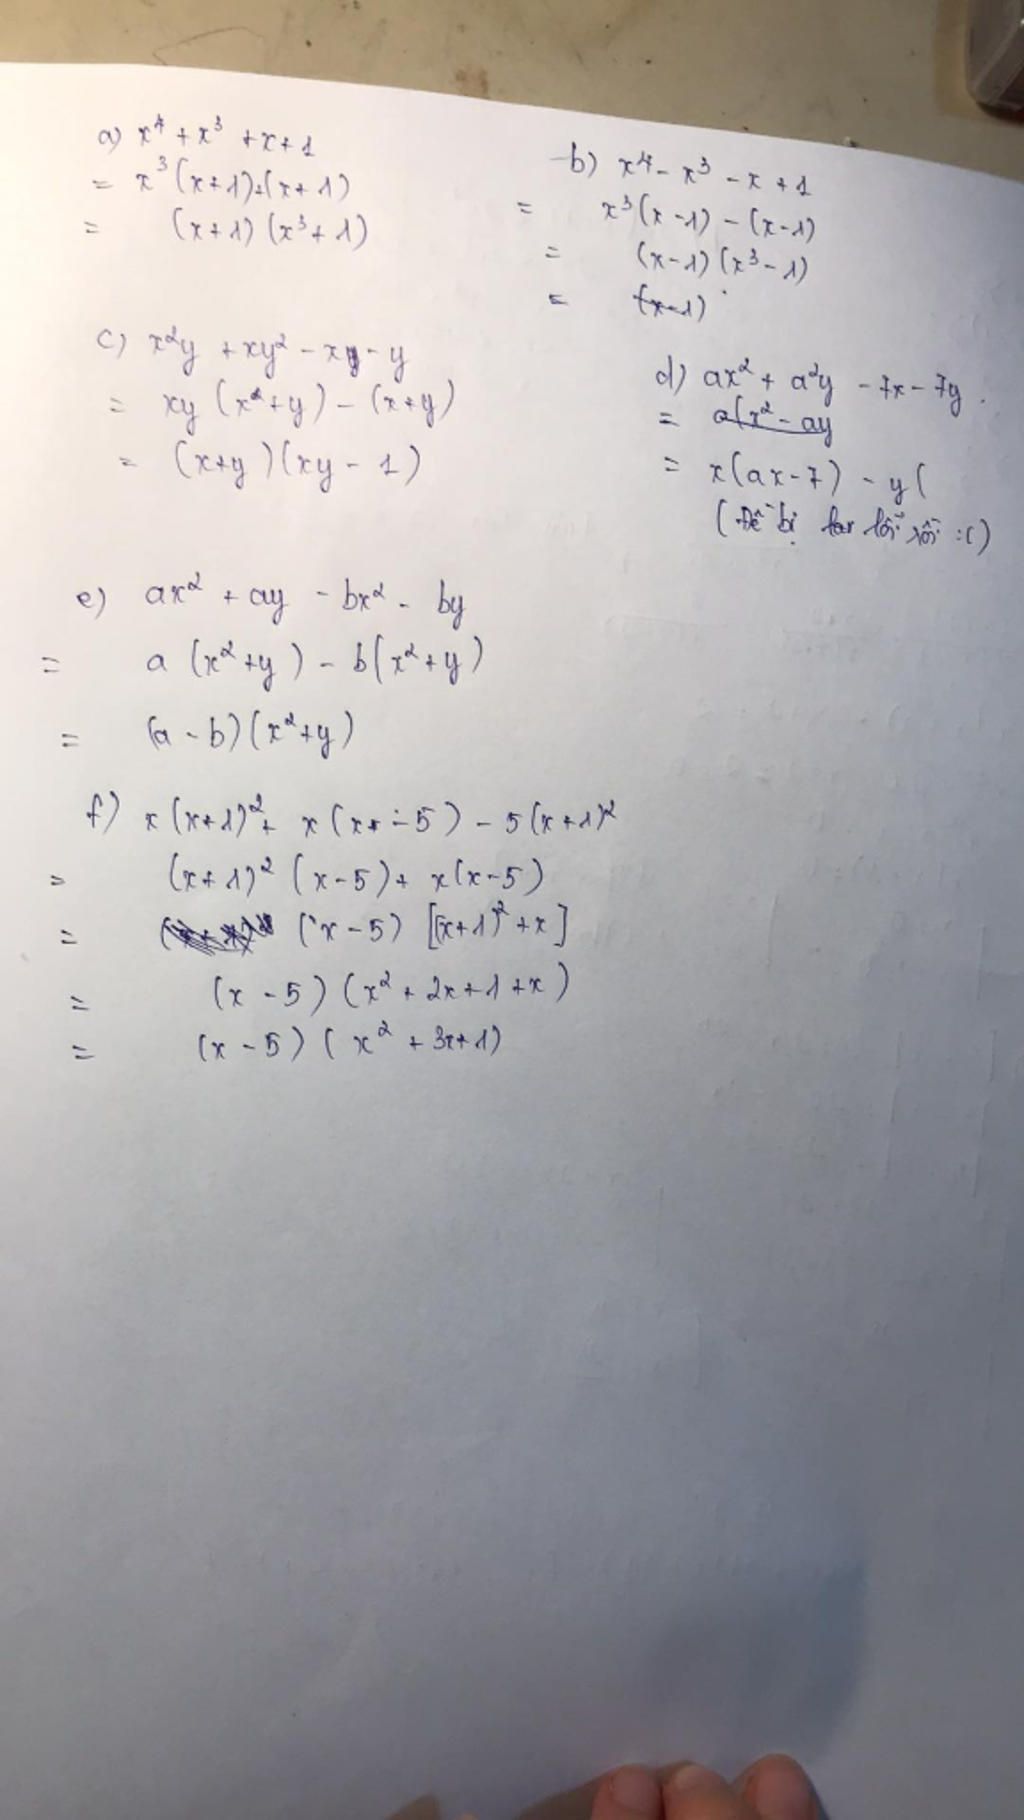 a) x⁴ + x³ + x + 1
= x³(x+1)+(x+1)
= (x+1)(x³+1)
b) x⁴ - x³ - x + 1
= x³(x-1) - (x-1)
= (x-1)(x³-1)
= (x-1)
c) x²y + xy² - x - y
= xy(x+y) - (x+y)
= (x+y)(xy - 1)
d) ax² + a²y - 7x - 7y.
= a(x² - ay
= x(ax-7) - y(
(Đề bị lỗi rồi :()
e) ax² + ay - bx² - by
= a(x²+y) - b(x²+y)
= (a - b)(x²+y)
f) x(x+1)² + x(x - 5) - 5(x+1)²
= (x+1)²(x-5) + x(x-5)
= (x-5)[(x+1)²+x]
= (x-5)(x² + 2x+1+x)
= (x-5)(x² + 3x+1)